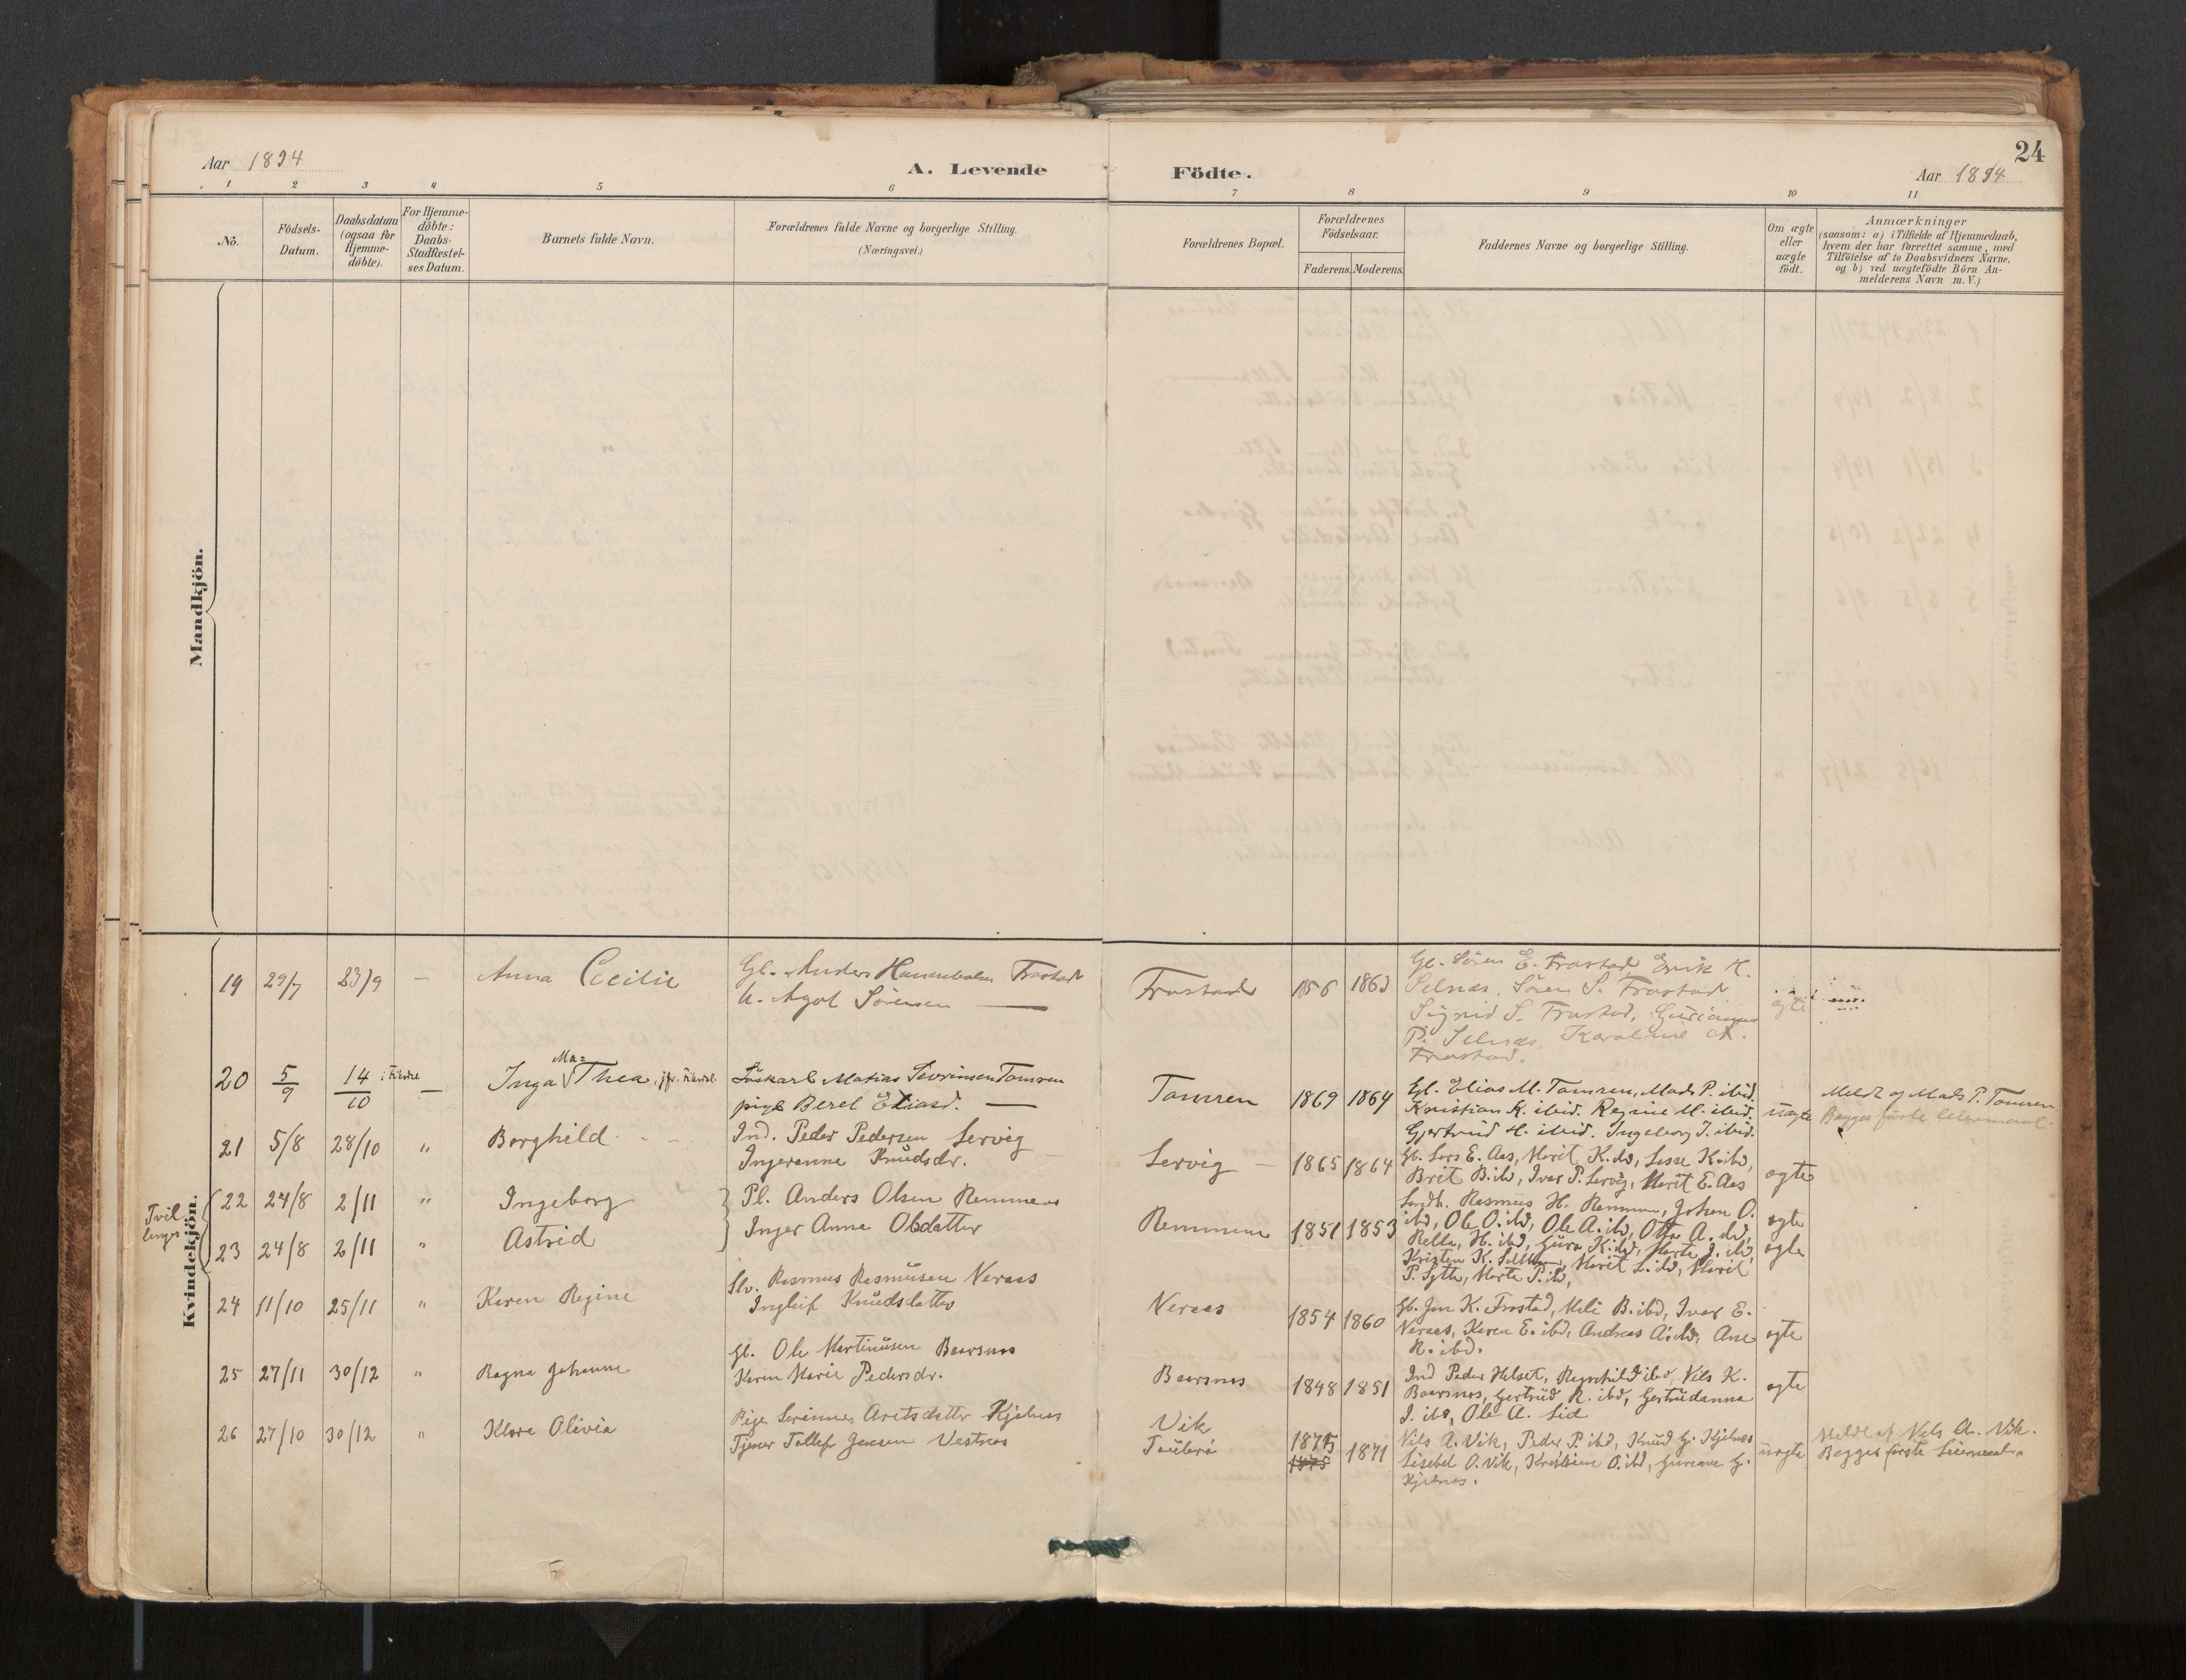 Aar 1894
A. Levende
Födte.
24
Aar 1894
1 2 3 4 5 6 7 8 9 10 11
No.
Födsels-
Datum.
Daabsdatum
(ogsaa for
Hjemme-
döbte).
For Hjemme-
döbte:
Daabs-
Stadfæstel-
ses Datum.
Barnets fulde Navn.
Forældrenes fulde Navne og borgerlige Stilling.
(Næringsvei.)
Forældrenes Bopæl.
Forældrenes
Födselsaar.
Faderens. Moderens.
Faddernes Navne og borgerlige Stilling.
Om ægte
eller
uægte
födt.
Anmærkninger
(saasom: a) i Tilfælde af Hjemmedaab,
hvem der har forrettet samme, med
Tilföielse af to Daabsvidners Navne,
og b) ved uægtefödte Börn An-
melderens Navn m. V.)
Mandkjön.
Kvindekjön.
19 29/7 23/9 — Anna Cecilie
Gb. Anders Frostad
Sörensen —
Frostad 1856 1863
Gb. Sören E. Frostad, Erik K.
Selnæs, Sören S. Frostad
Sigrid S. Frostad,
P. Selnæs, Karoline A.
Frostad.
ægte
20 5/9 14/10 — Inga Ma= Thea
Matias Severinsen Tomren
pige Beret Eliasd. —
Tomren 1869 1864
Gb. Elias M. Tomren, Mads P. ibid.
Kristian K. ibid. Regine M. ibid.
Gjertrud H. ibid. Ingeborg J. ibid.
uægte
Meldt af Mads P. Tomren
Begges förste Leiermaal.
21 5/8 28/10 " Borghild
Ind. Peder Pedersen Servig
Ingeranna Knudsdr.
Servig — 1865 1864
Gb. Lars E. Aas, Marit K. ibd, Lasse K. ibd,
Brit B. ibd, Ivar P. Servig, Marit E. Aas
ægte
Tvil
linger
22 24/8 2/11 " Ingeborg
Pl. Anders Olsen Remmem
23 24/8 2/11 " Astrid
Inger Anna Olsdatter
Remmem 1851 1853
Rasmus H. Remmem, Johan O.
ibd, Ole O. ibd, Ole A. ibd, Otto A. ibd,
H. ibd, Guru K. ibd, Marte J. ibd,
Kristen K. Marit L. ibd, Marit
P. Sylte, Marta P. ibd,
ægte
ægte
24 11/10 25/11 " Karen Regine
Slv. Rasmus Rasmusen Neraas
Ingleif Knudsdatter
Neraas 1854 1860
Gb. Jon K. Frostad, Meli B. ibd, Ivar E.
Neraas, Karen E. ibd, Andreas A. ibd, Ane
R. ibd.
ægte
25 27/11 30/12 " Ragna Johanne
Gb. Ole Martinusen Baarsnes
Karen Marie Pedersdr.
Baarsnes 1848 1851
Ind Peder Helset, Ragnhild ibd, Nils K.
Baarsnes, Gertrud R. ibd, Gertrudanna
J. ibd, Ole A. Lid
ægte
26 27/10 30/12 " Klara Olivia
Pige Serianna Aretsdatter Kjelnes
Tjener Tollef Jensen Vestnes
Vik
1875 1875 1871
Nils A. Vik, Peder P. ibd, Knud G. Kjelnes
Lisebet O. Vik, Kristine O. ibd, Gurianne G.
Kjelnes.
uægte
Meldt af Nils A. Vik.
Begges förste Leiermaal